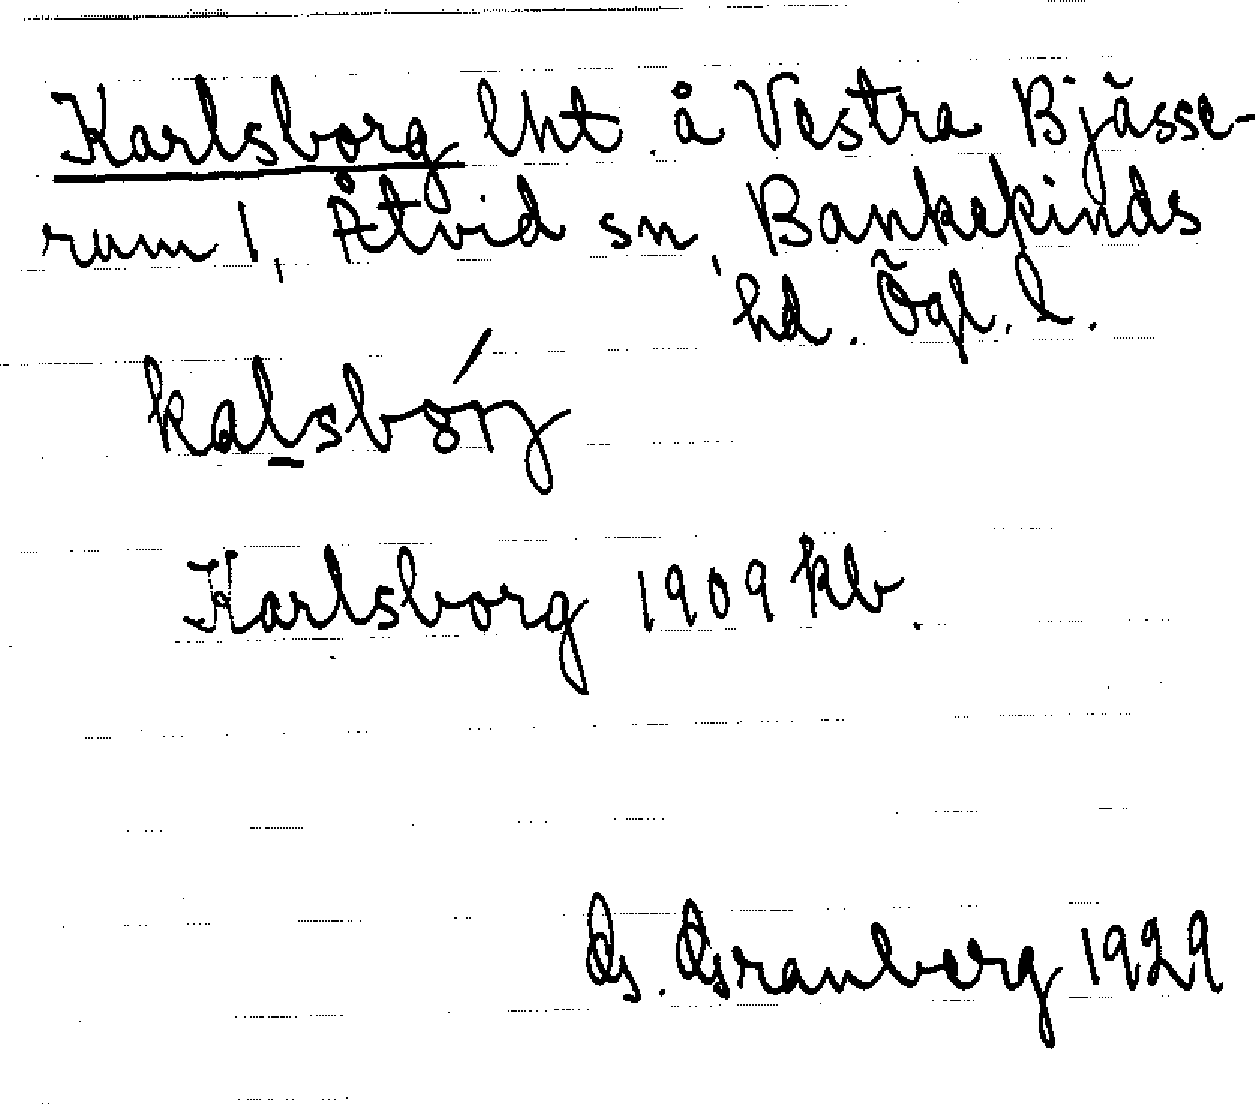 Karlsborg lht å Vestra Bjässe-
rum 1, Åtvid sn, Bankekinds
hd. Ögl. l.
Karlsborg 1909 kb.
G. Granberg 1929